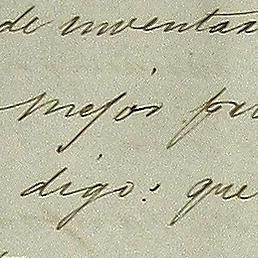 de inventar
mejor par
digo: que